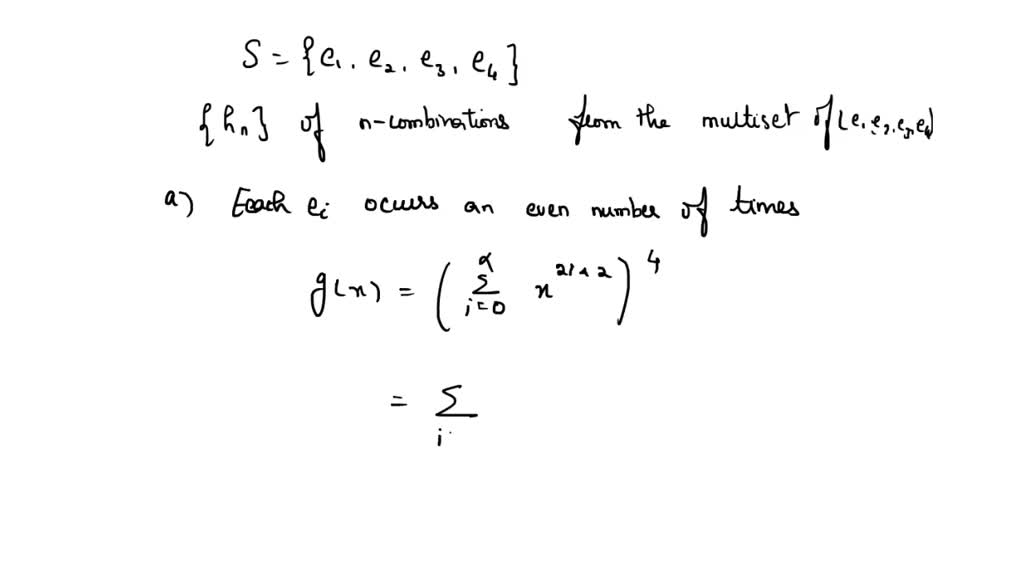 S = {e₁, e₂, e₃, e₄}
{hₙ} of n-combinations from the multiset of {e₁, e₂, e₃, e₄}
a) Each eᵢ occurs an even number of times
g(x) = (∑_{i=0}^{∝} x^{2i+2})^4
= ∑_{i